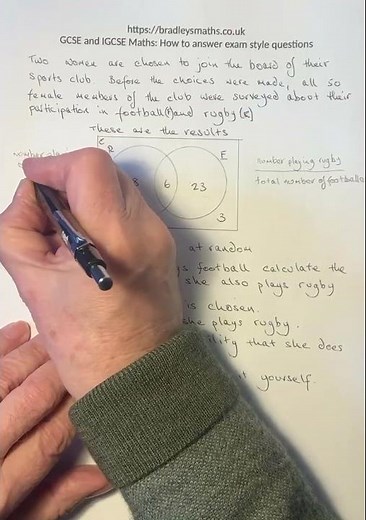 https://bradleysmaths.co.uk
GCSE and IGCSE Maths: How to answer exam style questions
Two women are chosen to join the board of their
sports club. Before the choices were made, all 50
female members of the club were surveyed about their
participation in football(F) and rugby(R)
These are the results
ε
R
F
number playing rugby
total number of football
6
23
3
at random
football calculate the
she also plays rugby
is chosen.
she plays rugby.
that she does
yourself.